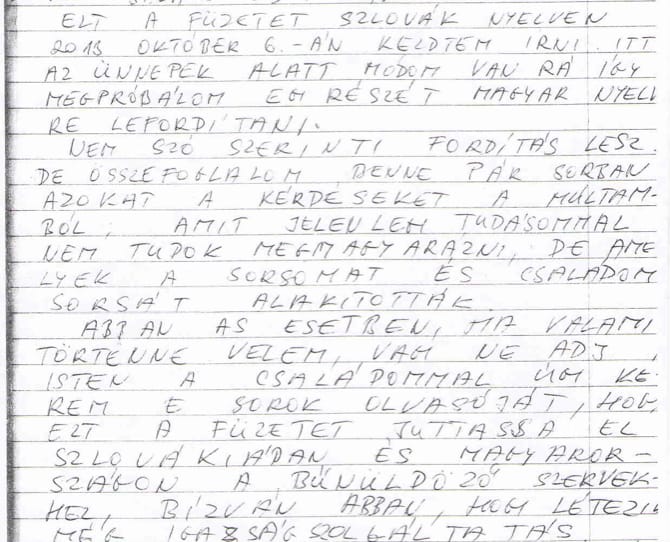 ELT A FÜZETET SZLOVÁK NYELVEN
2013 OKTÓBER 6.-ÁN KELDTEM IRNI. ITT
AZ ÜNNEPEK ALATT MÓDOM VAN RÁ ÍGY
MEGPRÓBÁLOM EGY RÉSZÉT MAGYAR NYELV
RE LEFORDÍTANI.
NEM SZÓ SZERINTI FORDÍTÁS LESZ.
DE ÖSSZEFOGLALOM BENNE PÁR SORBAN
AZOKAT A KÉRDÉSEKET A MÚLTAM-
BÓL, AMIT JELENLEM TUDÁSOMMAL
NEM TUDOK MEGMAGYARÁZNI, DE AME
LYEK A SORSOMAT ÉS CSALÁDOM
SORSÁT ALAKÍTOTTÁK.
ABBAN AS ESETBEN, HA VALAMI
TÖRTÉNNE VELEM, VAGY NE ADJ,
ISTEN A CSALÁDOMMAL ÚGY KÉ-
REM E SOROK OLVASÓJÁT, HOGY
EZT A FÜZETET JUTTASSA EL
SZLOVÁKIÁBAN ÉS MAGYAROR-
SZÁGON A BŰNÜLDÖZŐ SZERVEK-
HEZ, BÍZVÁN ABBAN, HOGY LÉTEZIK
MÉG IGAZSÁGSZOLGÁLTATÁS